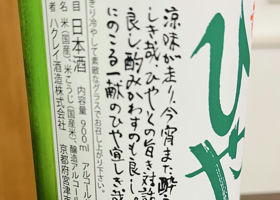 ひや
涼味が走り、今宵また酔う
しき哉、ひや。その旨き対話
良し、酌みかわすのも良し。
にのこる一献のひや宜しき哉
きり冷やして素敵なグラスでお召し上がり下さい。
目 日本酒 内容量 900ml アルコール
名 米(国産)、米こうじ(国産米)、醸造アルコール
者 ハクレイ酒造株式会社
京都府宮津市